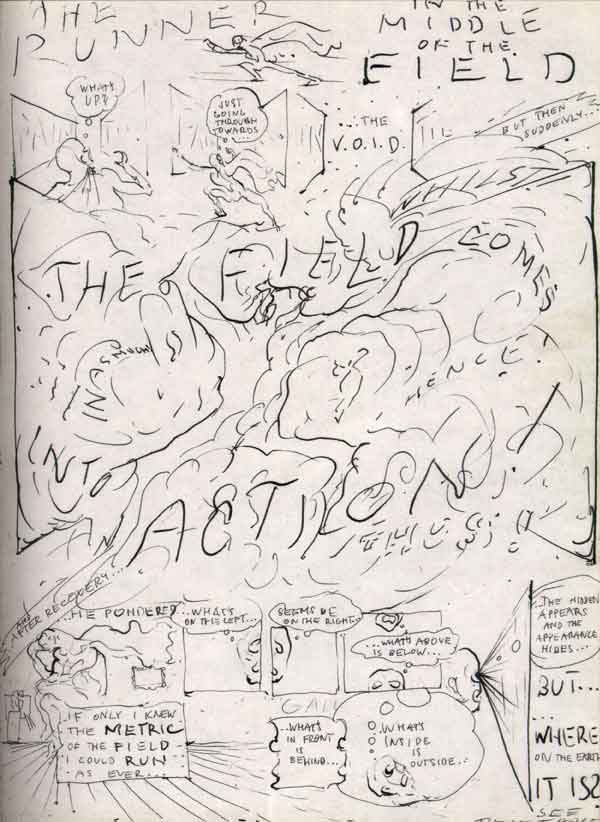 THE
RUNNER
IN THE
MIDDLE
OF THE
FIELD
WHAT'S
UP?
JUST
GOING
THROUGH
TOWARDS
...
THE
V.O.I.D.
BUT THEN
SUDDENLY...
WHILST
THE FIELD COMES
HENCE
INTO
AN
ACTION!
THUS
AND
AFTER RECOVERY...
...HE PONDERED
...WHAT'S
ON THE LEFT...
SEEMS TO BE
ON THE RIGHT
...WHAT'S ABOVE
IS BELOW...
IF ONLY I KNEW
THE METRIC
OF THE FIELD
I COULD RUN
AS EVER...
...WHAT'S
IN FRONT
IS
BEHIND...
...WHAT'S
INSIDE
IS
OUTSIDE...
...THE HIDDEN
APPEARS
AND THE
APPEARANCE
HIDES...
BUT...
...
WHERE
ON THE EARTH
IT IS?
SEE